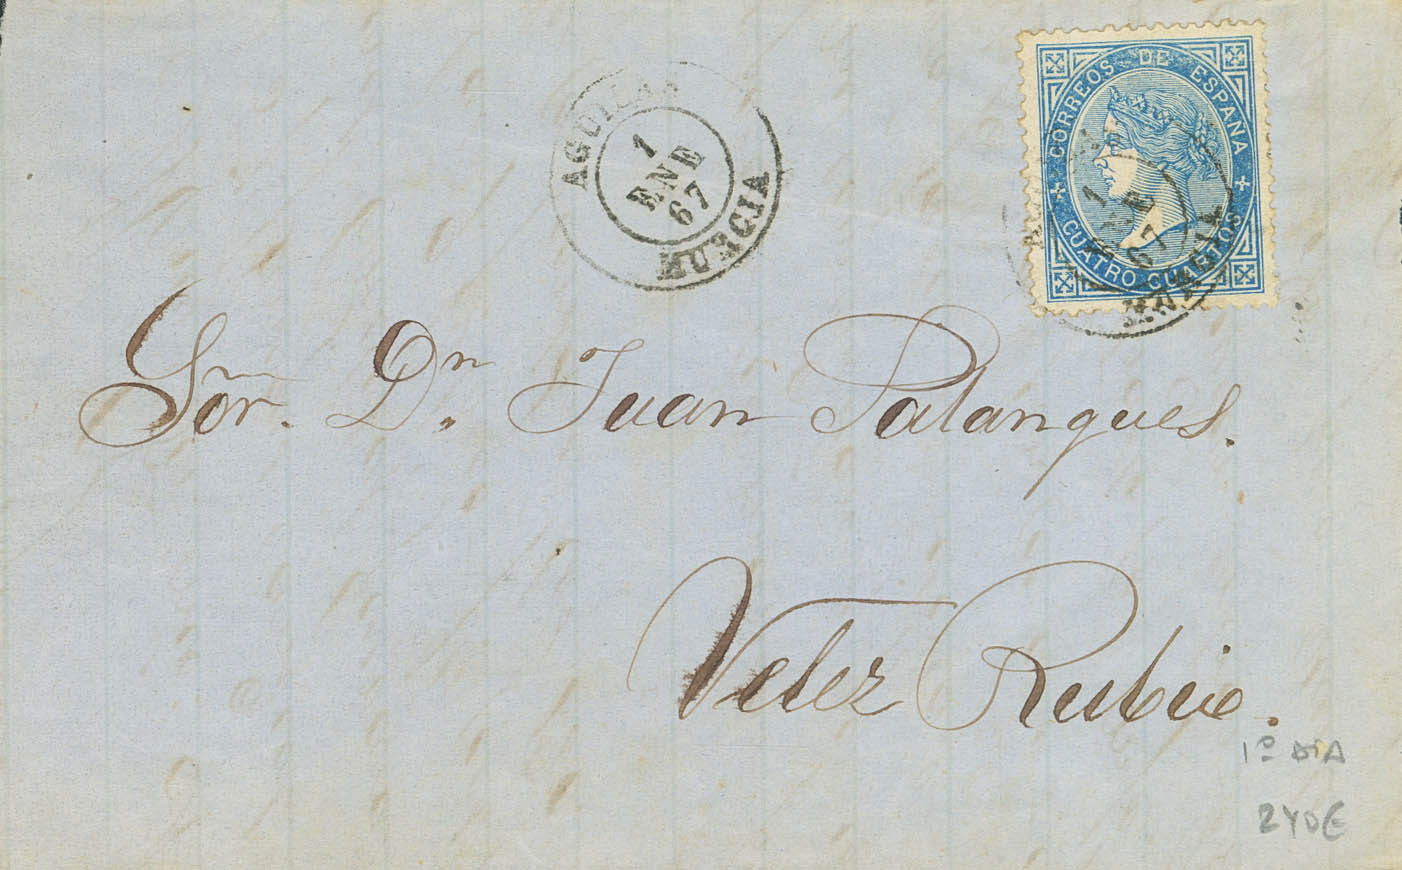 AGUILAS
1
ENE
67
MURCIA
CORREOS DE ESPAÑA
CUATRO CUARTOS
1
ENE
67
MURCIA
Sor. Dn. Juan Palanques.
Velez Rubio.
1º DIA
240€